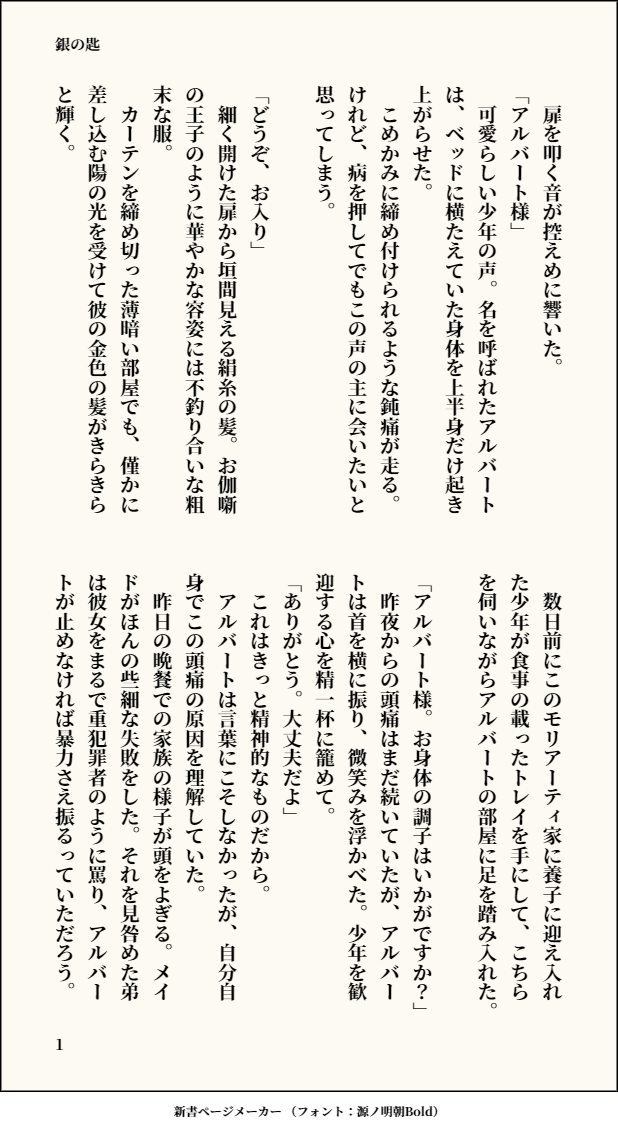 銀の匙
　扉を叩く音が控えめに響いた。
「アルバート様」
　可愛らしい少年の声。名を呼ばれたアルバート
は、ベッドに横たえていた身体を上半身だけ起き
上がらせた。
　こめかみに締め付けられるような鈍痛が走る。
けれど、病を押してでもこの声の主に会いたいと
思ってしまう。
「どうぞ、お入り」
　細く開けた扉から垣間見える絹糸の髪。お伽噺
の王子のように華やかな容姿には不釣り合いな粗
末な服。
　カーテンを締め切った薄暗い部屋でも、僅かに
差し込む陽の光を受けて彼の金色の髪がきらきら
と輝く。
　数日前にこのモリアーティ家に養子に迎え入れ
た少年が食事の載ったトレイを手にして、こちら
を伺いながらアルバートの部屋に足を踏み入れた。
「アルバート様。お身体の調子はいかがですか？」
　昨夜からの頭痛はまだ続いていたが、アルバー
トは首を横に振り、微笑みを浮かべた。少年を歓
迎する心を精一杯に籠めて。
「ありがとう。大丈夫だよ」
　これはきっと精神的なものだから。
　アルバートは言葉にこそしなかったが、自分自
身でこの頭痛の原因を理解していた。
　昨日の晩餐での家族の様子が頭をよぎる。メイ
ドがほんの些細な失敗をした。それを見咎めた弟
は彼女をまるで重犯罪者のように罵り、アルバー
トが止めなければ暴力さえ振るっていただろう。
1
新書ページメーカー（フォント：源ノ明朝Bold）